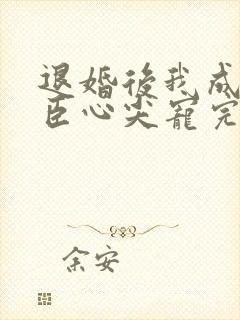 退婚後我成
臣心尖寵完
余安